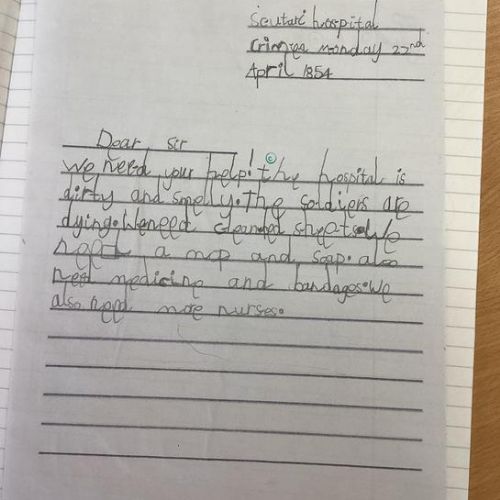 Scutari hospital
Crimea Monday 22nd
April 1854
Dear sir
We need your help! the hospital is
dirty and smelly. The soldiers are
dying. We need cleaned sheets. We
need a mop and soap. also
need medicine and bandages. We
also need more nurses.